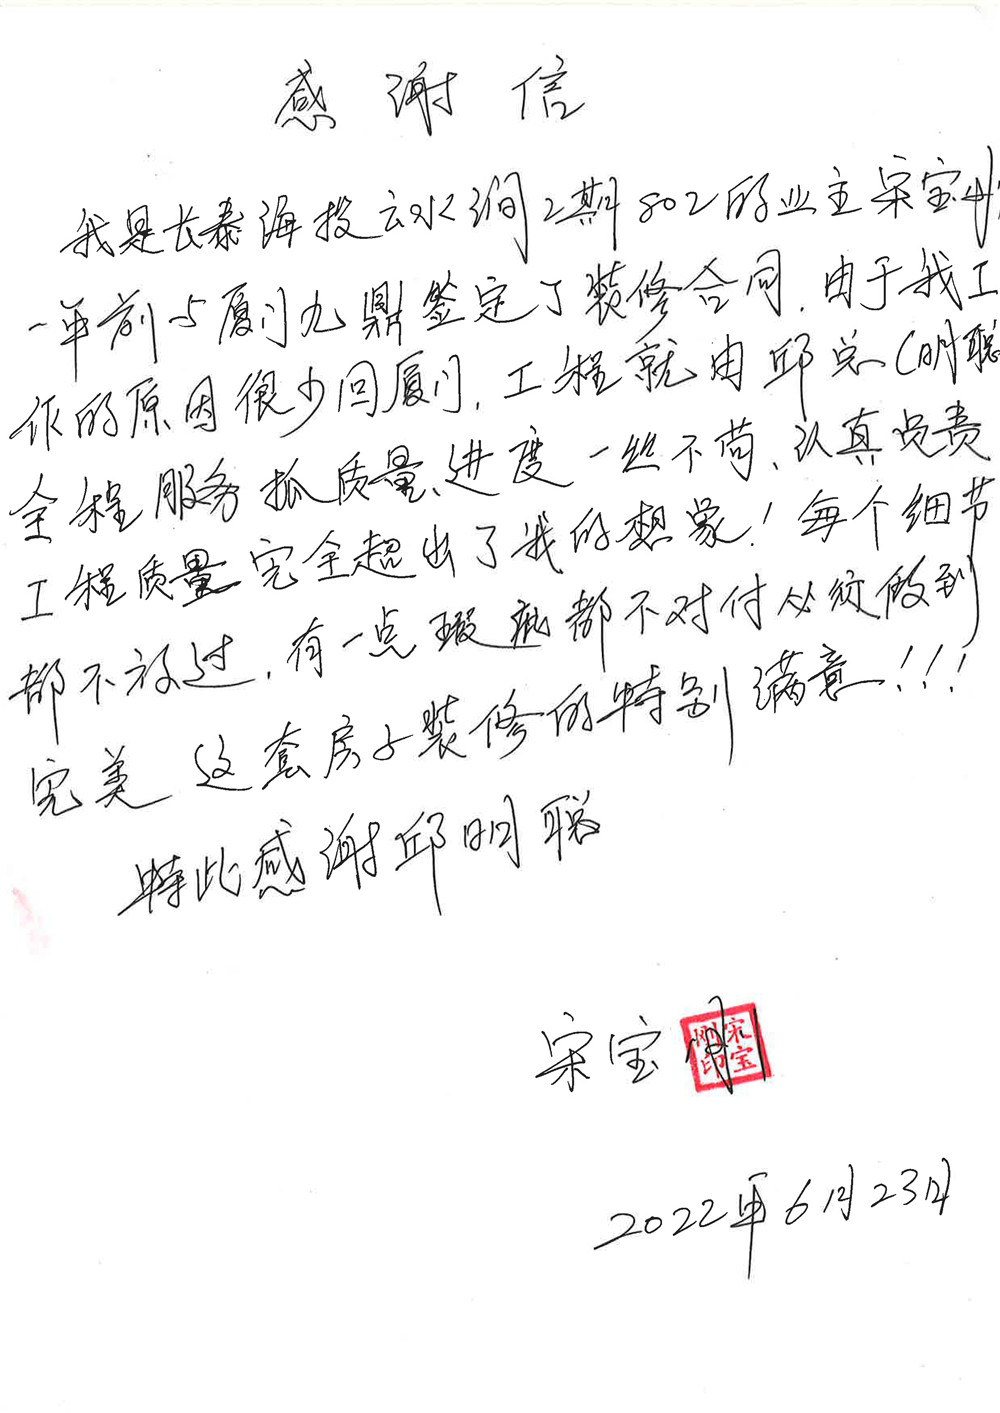 感谢信
我是长泰海投云水涧2期802的业主宋宝刚,
一年前与厦门九鼎签定了装修合同.由于我工
作的原因很少回厦门,工程就由邱总(明聪
全程服务抓质量、进度一丝不苟、认真负责
工程质量完全超出了我的想象!每个细节
都不放过,有一点瑕疵都不对付必须做到
完美 这套房子装修的特别满意!!!
特此感谢邱明聪
宋宝刚
宋宝刚印
2022年6月23日